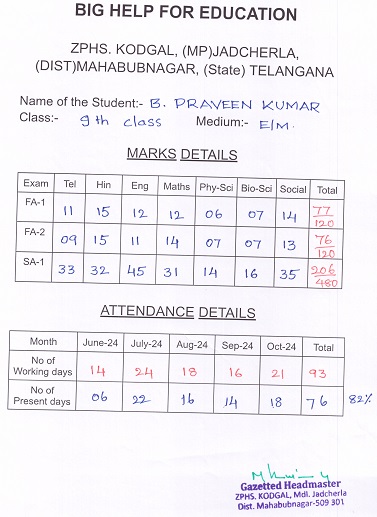 BIG HELP FOR EDUCATION
ZPHS. KODGAL, (MP)JADCHERLA,
(DIST)MAHABUBNAGAR, (State) TELANGANA
Name of the Student:- B. PRAVEEN KUMAR
Class:- 9th class Medium:- E/M.
MARKS DETAILS
Exam Tel Hin Eng Maths Phy-Sci Bio-Sci Social Total
FA-1 11 15 12 12 06 07 14 77/120
FA-2 09 15 11 14 07 07 13 76/120
SA-1 33 32 45 31 14 16 35 206/480
ATTENDANCE DETAILS
Month June-24 July-24 Aug-24 Sep-24 Oct-24 Total
No of Working days 14 24 18 16 21 93
No of Present days 06 22 16 14 18 76 82%
Gazetted Headmaster
ZPHS. KODGAL, Mdl. Jadcherla
Dist. Mahabubnagar-509 301